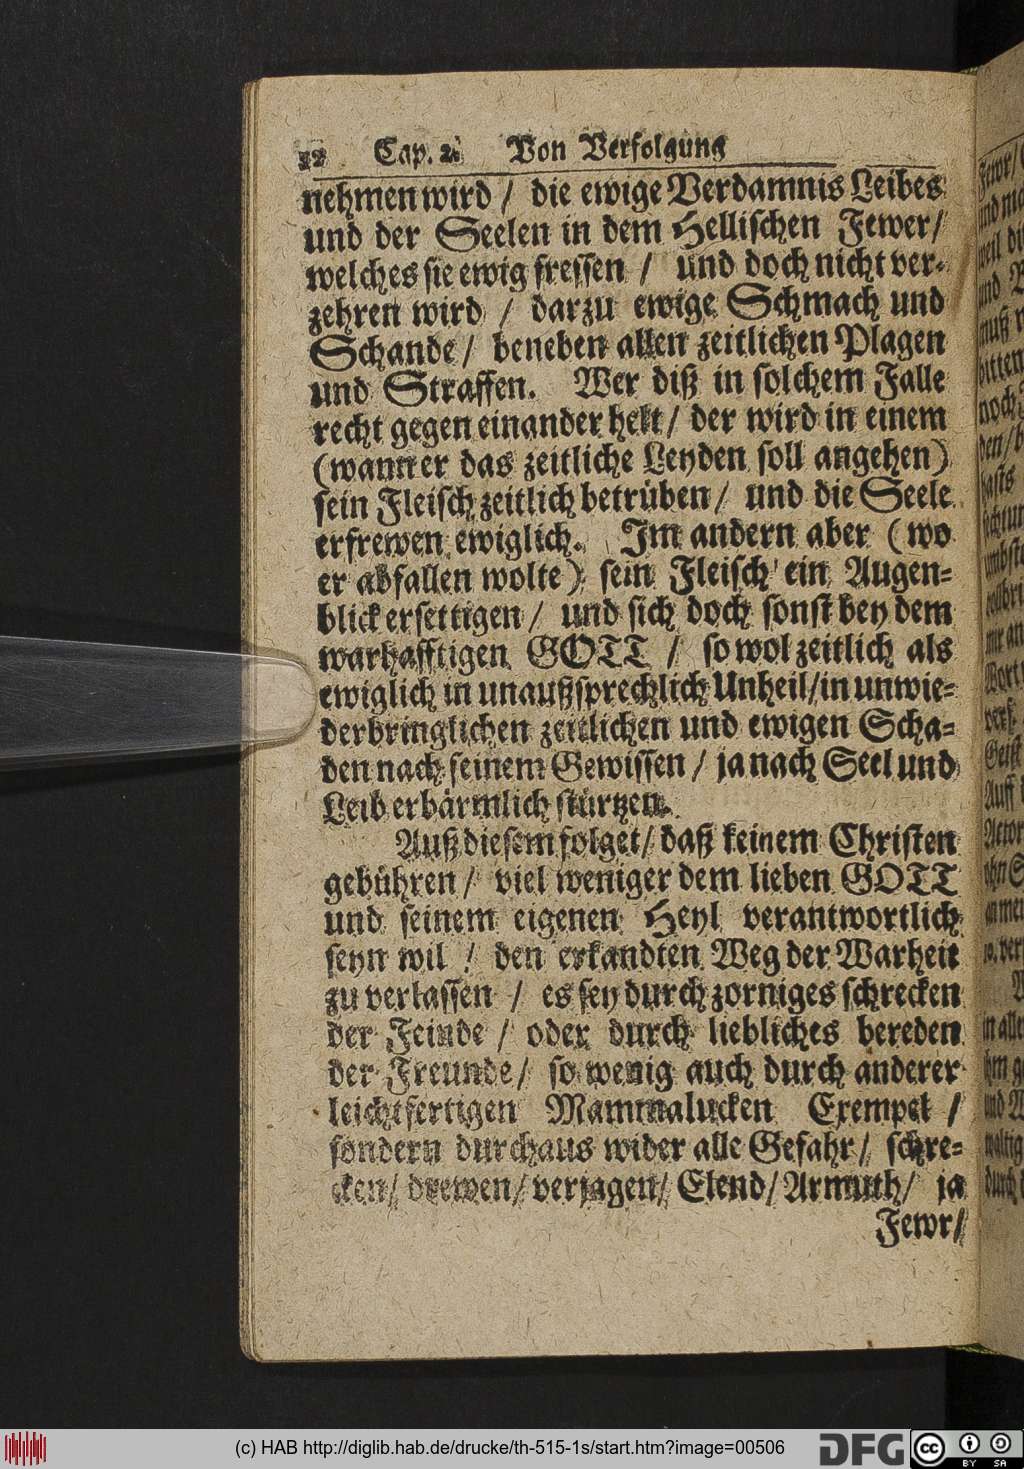 22 Cap. 2. Von Verfolgung
nehmen wird / die ewige Verdamnis Leibes
und der Seelen in dem Hellischen Fewer /
welches sie ewig fressen / und doch nicht ver-
zehren wird / darzu ewige Schmach und
Schande / beneben allen zeitlichen Plagen
und Straffen. Wer diß in solchem Falle
recht gegen einander helt / der wird in einem
(wann er das zeitliche Leyden soll angehen)
sein Fleisch zeitlich betrüben / und die Seele
erfrewen ewiglich. Im andern aber (wo
er abfallen wolte) sein Fleisch ein Augen-
blick ersettigen / und sich doch sonst bey dem
warhafftigen GOTT / so wol zeitlich als
ewiglich in unaußsprechlich Unheil / in unwie-
derbringlichen zeitlichen und ewigen Scha-
den nach seinem Gewissen / ja nach Seel und
Leib erbärmlich stürtzen.
Auß diesem folget / daß keinem Christen
gebühren / viel weniger dem lieben GOTT
und seinem eigenen Heyl verantwortlich
seyn wil / den erkandten Weg der Warheit
zu verlassen / es sey durch zorniges schrecken
der Feinde / oder durch liebliches bereden
der Freunde / so wenig auch durch anderer
leichtfertigen Mammalucken Exempel /
sondern durchaus wider alle Gefahr / schre-
cken / drewen / verjagen / Elend / Armuth / ja
Fewr /
(c) HAB http://diglib.hab.de/drucke/th-515-1s/start.htm?image=00506
DFG
cc BY SA